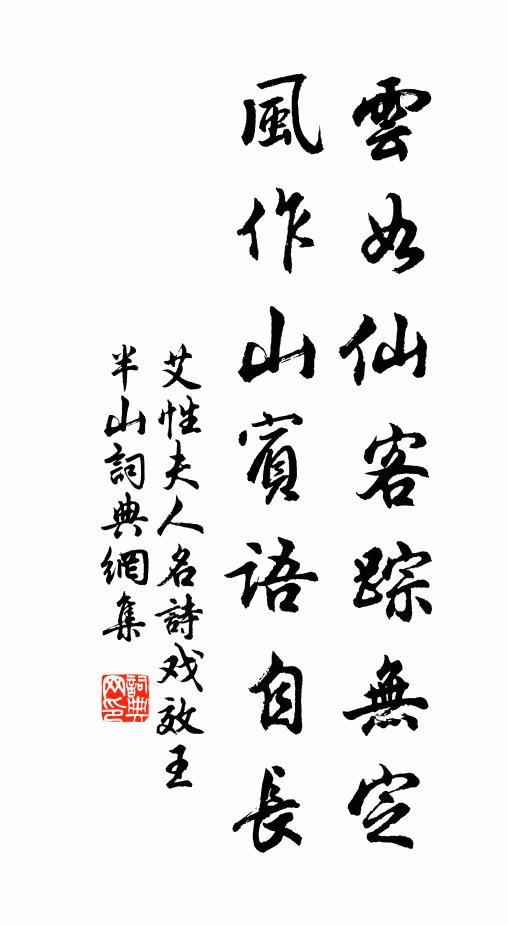 雲如仙客踪無定
風作山賓語自長
艾性夫人名詩戏效王
半山詞典網集
詞典网印